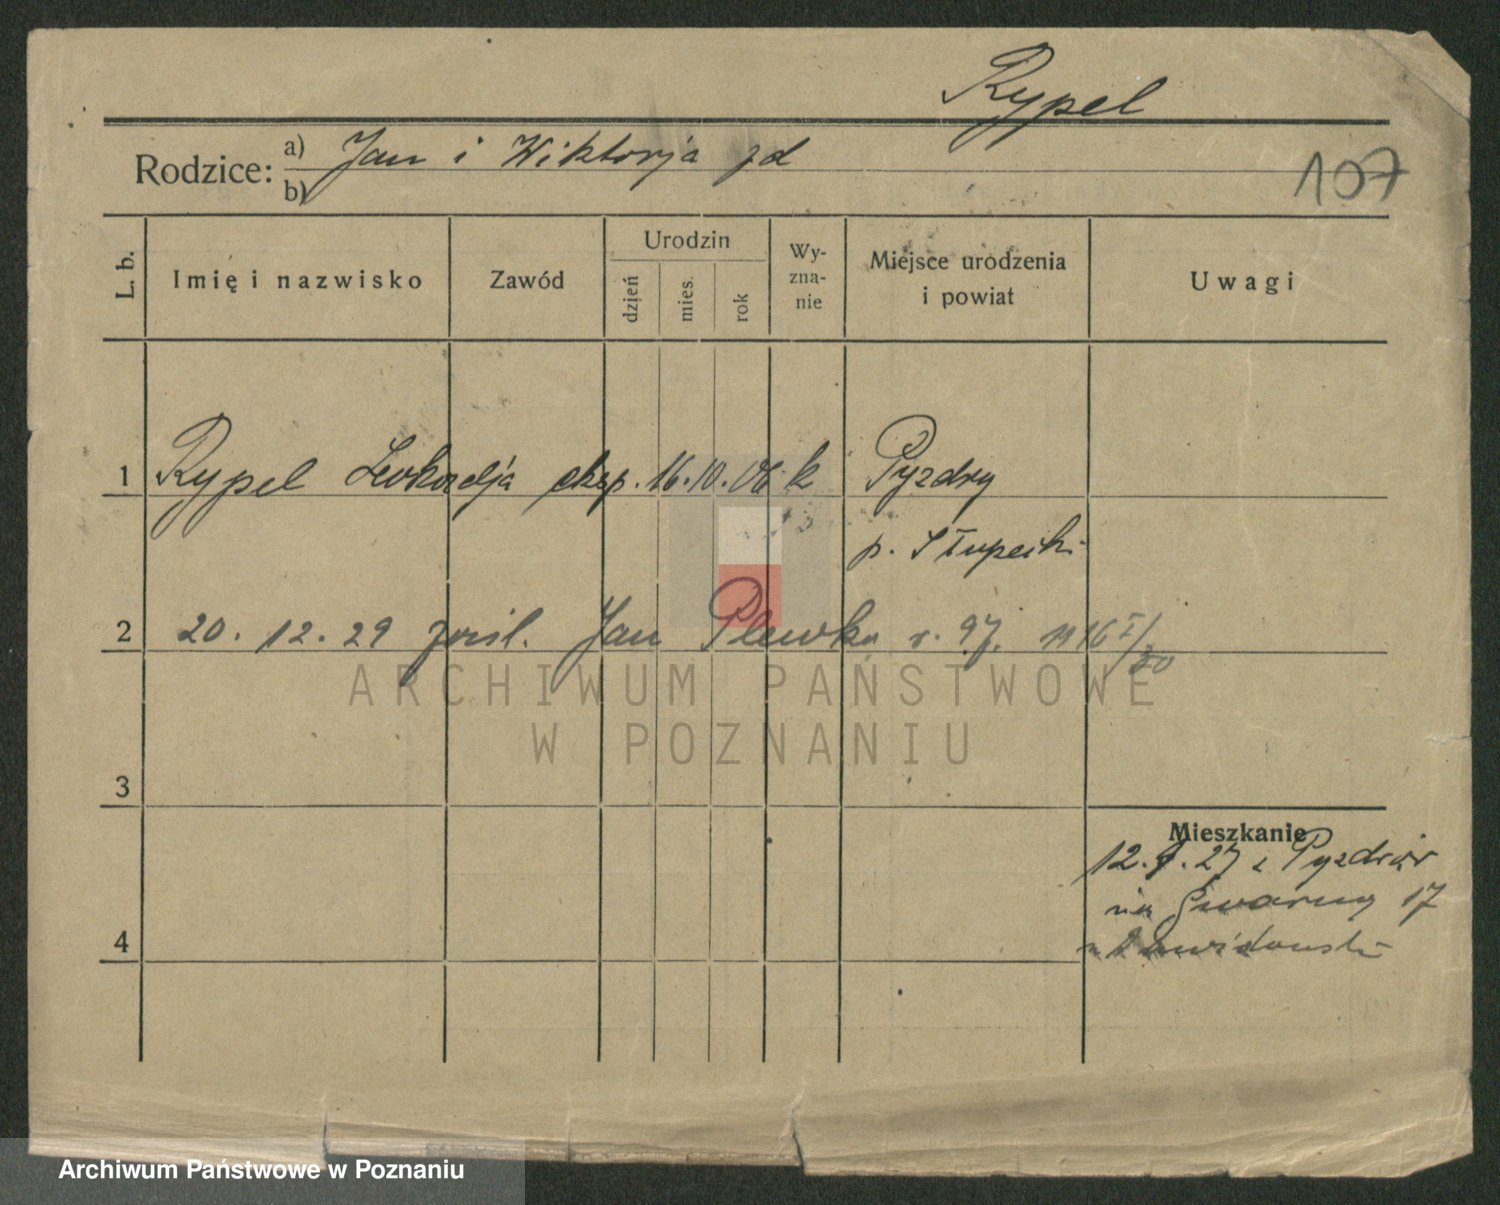 Rypel
Rodzice: a) Jan i Wiktorja
b)
107
L. b.
Imię i nazwisko
Zawód
Urodzin
dzień
mies.
rok
Wy-
zna-
nie
Miejsce urodzenia
i powiat
Uwagi
1 Rypel Leokadja eksp. 16. 10. 06 k Pyzdry
p. Słupecki
2 20. 12. 29 zaśl. Jan Plewka r. 97. 16 I/30
3
4
Mieszkanie
12. 9. 27 z Pyzdrów
na Gwarną 17
ARCHIWUM PAŃSTWOWE
W POZNANIU
Archiwum Państwowe w Poznaniu